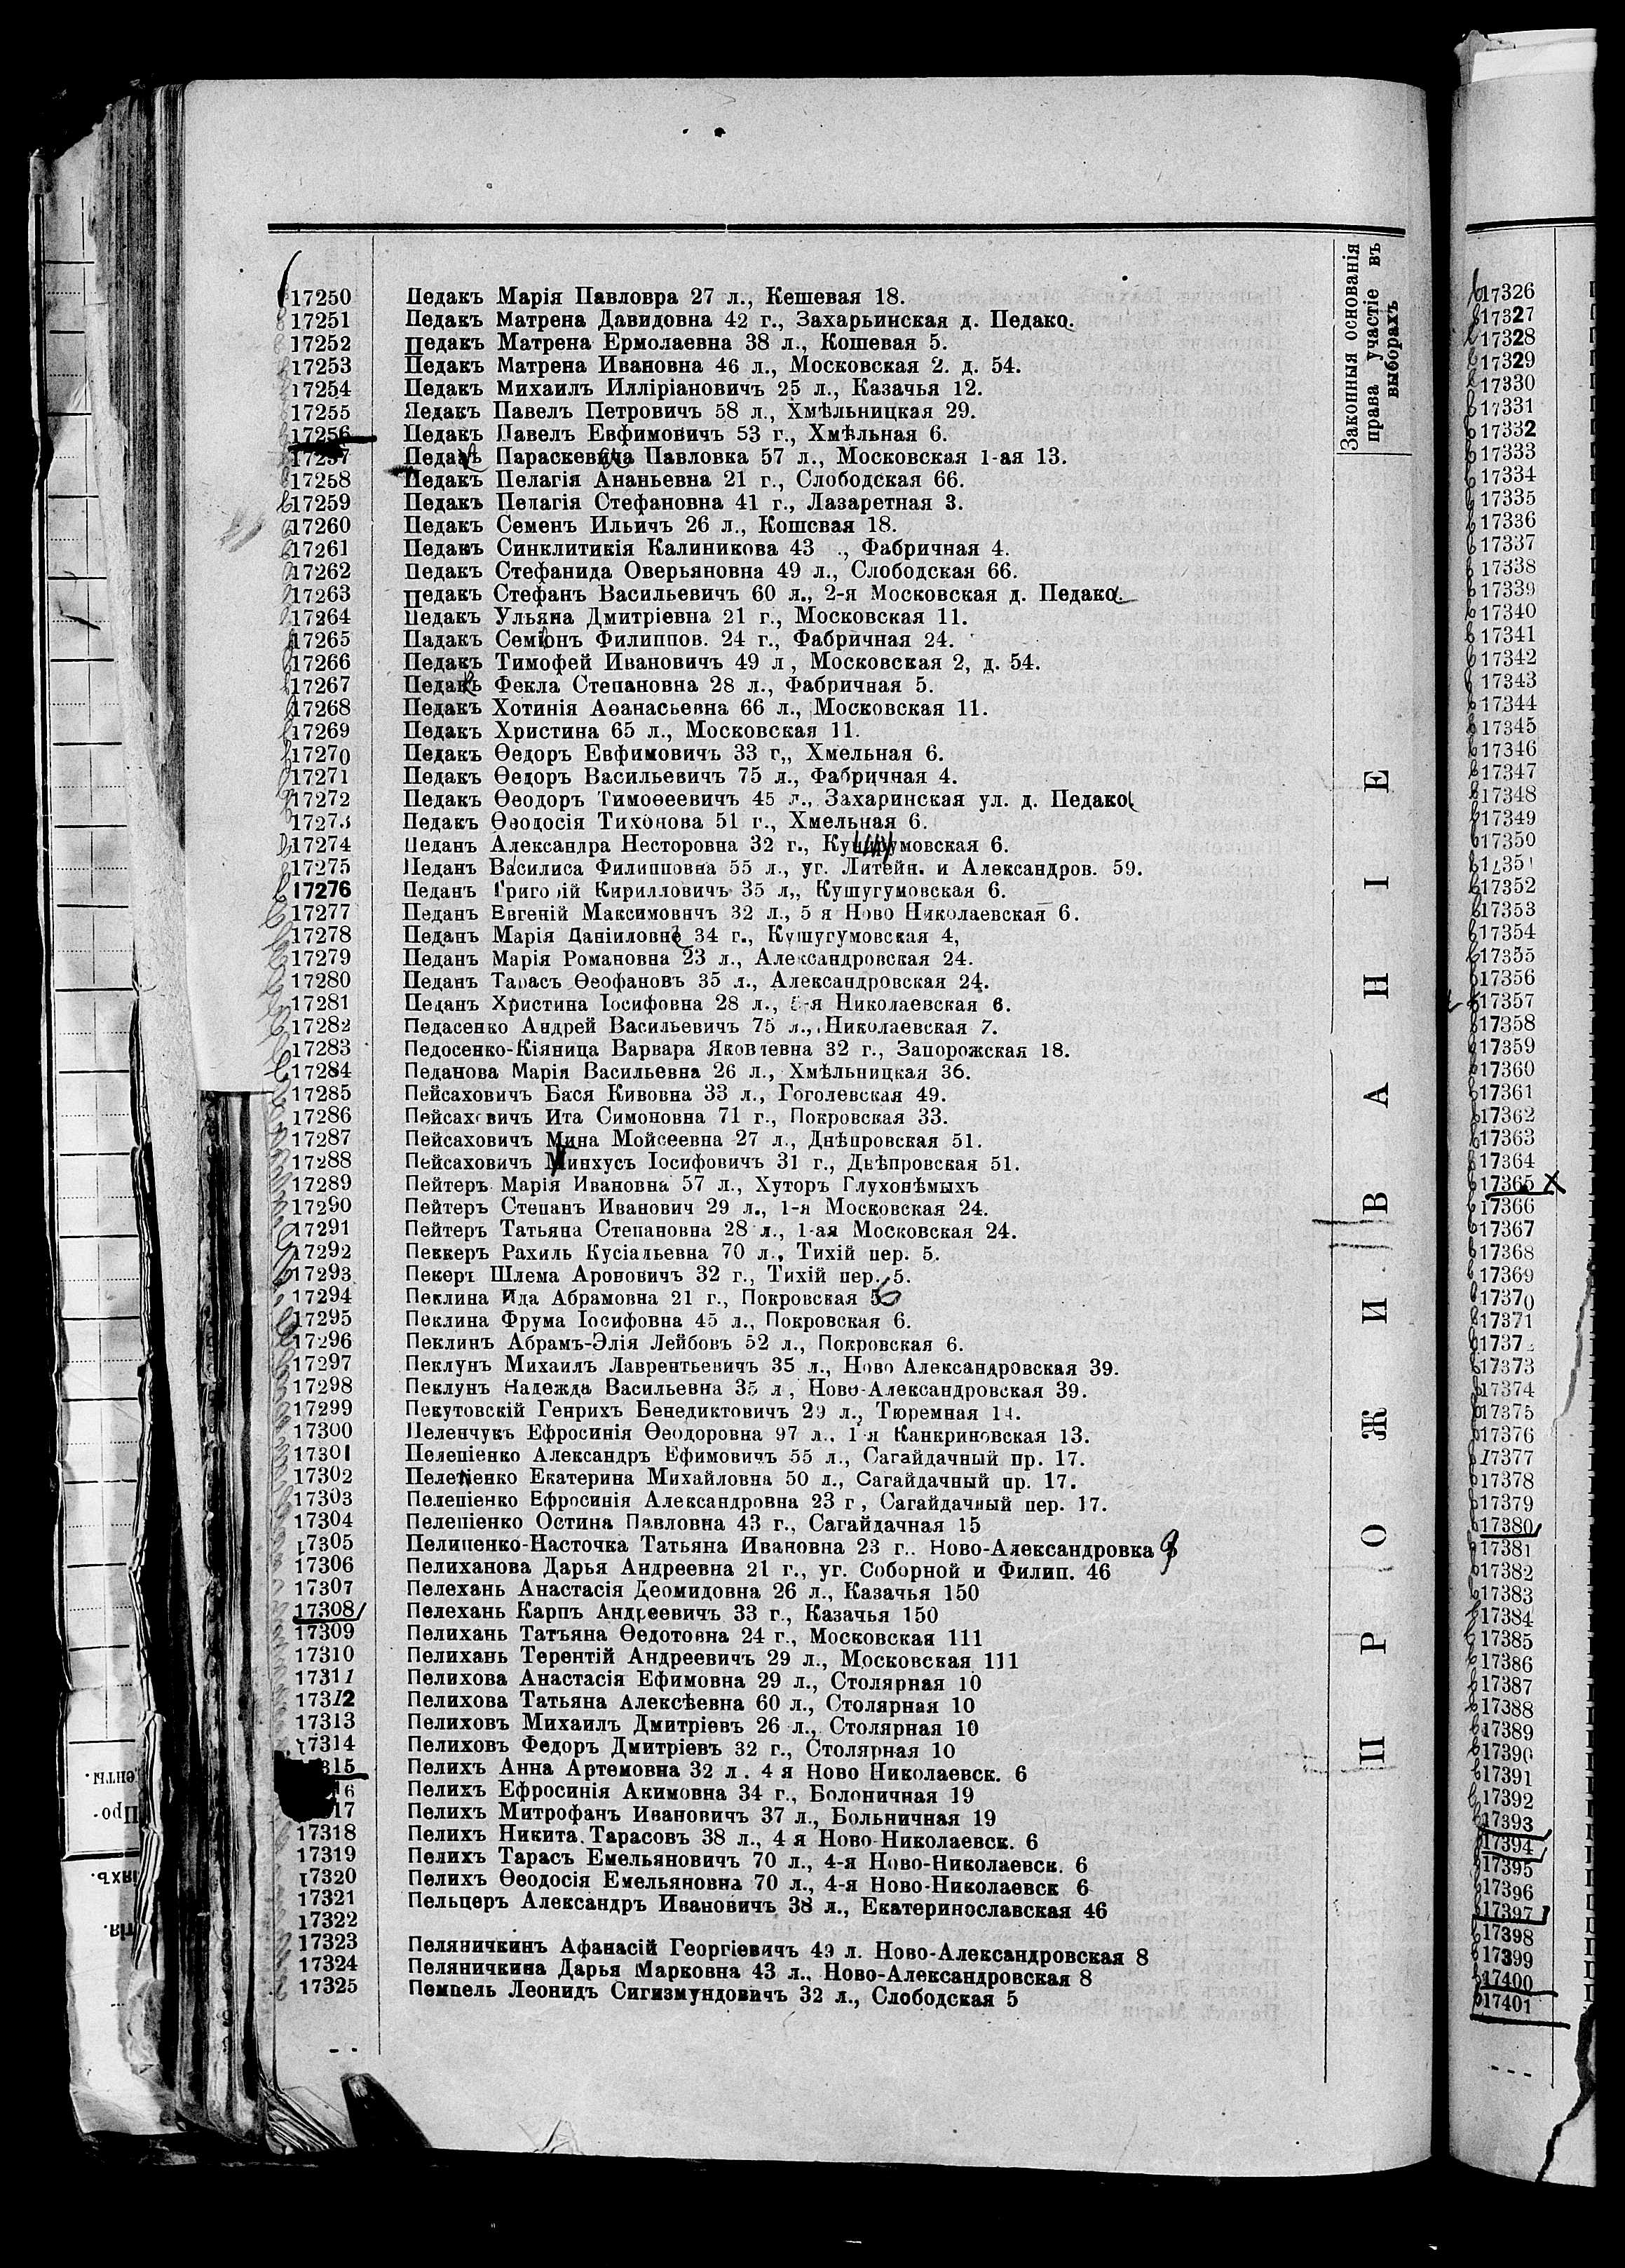 Законныя основанія права участіе въ выборахъ
ПРОЖИВАНІЕ
17250 Педакъ Марія Павловра 27 л., Кешевая 18.
17251 Педакъ Матрена Давидовна 42 г., Захарьинская д. Педако.
17252 Педакъ Матрена Ермолаевна 38 л., Кошевая 5.
17253 Педакъ Матрена Ивановна 46 л., Московская 2. д. 54.
17254 Педакъ Михаилъ Илліріановичъ 25 л., Казачья 12.
17255 Педакъ Павелъ Петровичъ 58 л., Хмѣльницкая 29.
17256 Педакъ Павелъ Евфимовичъ 53 г., Хмѣльная 6.
17257 Педакъ Параскевича Павловка 57 л., Московская 1-ая 13.
17258 Педакъ Пелагія Ананьевна 21 г., Слободская 66.
17259 Педакъ Пелагія Стефановна 41 г., Лазаретная 3.
17260 Педакъ Семенъ Ильичъ 26 л., Кошсвая 18.
17261 Педакъ Синклитикія Калиникова 43 ., Фабричная 4.
17262 Педакъ Стефанида Оверьяновна 49 л., Слободская 66.
17263 Педакъ Стефанъ Васильевичъ 60 л., 2-я Московская д. Педако.
17264 Педакъ Ульяна Дмитріевна 21 г., Московская 11.
17265 Падакъ Семіонъ Филиппов. 24 г., Фабричная 24.
17266 Педакъ Тимофей Ивановичъ 49 л, Московская 2, д. 54.
17267 Педакъ Фекла Степановна 28 л., Фабричная 5.
17268 Педакъ Хотинія Аѳанасьевна 66 л., Московская 11.
17269 Педакъ Христина 65 л., Московская 11.
17270 Педакъ Ѳедоръ Евфимовичъ 33 г,, Хмельная 6.
17271 Педакъ Ѳедоръ Васильевичъ 75 л., Фабричная 4.
17272 Педакъ Ѳеодоръ Тимоѳеевичъ 45 л., Захаринская ул. д. Педако
17273 Педакъ Ѳеодосія Тихонова 51 г., Хмельная 6.
17274 Педанъ Александра Несторовна 32 г., Кушугумовская 6.
17275 Педанъ Василиса Филипповна 55 л., уг. Литейн. и Александров. 59.
17276 Педанъ Григорій Кирилловичъ 35 л,, Кушугумовская 6.
17277 Педанъ Евгеній Максимовичъ 32 л., 5 я Ново Николаевская 6.
17278 Педанъ Марія Даніиловна 34 г., Кушугумовская 4,
17279 Педанъ Марія Романовна 23 л., Александровская 24.
17280 Педанъ Тарасъ Ѳеофановъ 35 л., Александровская 24.
17281 Педанъ Христина Іосифовна 28 л., 5-я Николаевская 6.
17282 Педасенко Андрей Васильевичъ 75 л., Николаевская 7.
17283 Педосенко-Кіяница Варвара Яковлевна 32 г., Запорожская 18.
17284 Педанова Марія Васильевна 26 л., Хмѣльницкая 36.
17285 Пейсаховичъ Бася Кивовна 33 л., Гоголевская 49.
17286 Пейсаховичъ Ита Симоновна 71 г., Покровская 33.
17287 Пейсаховичъ Мина Мойсеевна 27 л., Днѣпровская 51.
17288 Пейсаховичъ Минхусъ Іосифовичъ 31 г., Днѣпровская 51.
17289 Пейтеръ Марія Ивановна 57 л., Хуторъ Глухонѣмыхъ
17290 Пейтеръ Степанъ Иванович 29 л., 1-я Московская 24.
17291 Пейтеръ Татьяна Степановна 28 л., 1-ая Московская 24.
17292 Пеккеръ Рахиль Кусіальевна 70 л., Тихій пер. 5.
17293 Пекеръ Шлема Ароновичъ 32 г., Тихій пер. 5.
17294 Пеклина Ида Абрамовна 21 г., Покровская 6
17295 Пеклина Фрума Іосифовна 45 л., Покровская 6.
17296 Пеклинъ Абрамъ-Элія Лейбовъ 52 л., Покровская 6.
17297 Пеклунъ Михаилъ Лаврентьевичъ 35 л., Ново Александровская 39.
17298 Пеклунъ Надежда Васильевна 35 л, Ново-Александровская 39.
17299 Пекутовскій Генрихъ Бенедиктовичъ 29 л., Тюремная 14.
17300 Пеленчукъ Ефросинія Ѳеодоровна 97 л.. 1 я Канкриновская 13.
17301 Пелепіенко Александръ Ефимовичъ 55 л., Сагайдачный пр. 17.
17302 Пелепіенко Екатерина Михайловна 50 л., Сагайдачный пр. 17.
17303 Пелепіенко Ефросинія Александровна 23 г, Сагайдачный пер. 17.
17304 Пелепіенко Остина Павловна 43 г., Сагайдачная 15
17305 Пелипенко-Насточка Татьяна Ивановна 23 г.. Ново-Александровка 9
17306 Пелиханова Дарья Андреевна 21 г., уг. Соборной и Филип. 46
17307 Пелехань Анастасія Деомидовна 26 л., Казачья 150
17308 Пелехань Карпъ Андреевичъ 33 г., Казачья 150
17309 Пелихань Татъяна Ѳедотовна 24 г., Московская 111
17310 Пелихань Терентій Андреевичъ 29 л., Московская 111
17311 Пелихова Анастасія Ефимовна 29 л., Столярная 10
17312 Пелихова Татьяна Алексѣевна 60 л., Столярная 10
17313 Пелиховъ Михаилъ Дмитріевъ 26 л., Столярная 10
17314 Пелиховъ Федоръ Дмитріевъ 32 г., Столярная 10
315 Пелихъ Анна Артемовна 32 л. 4 я Ново Николаевск. 6
16 Пелихъ Ефросинія Акимовна 34 г., Болоничная 19
17 Пелихъ Митрофанъ Ивановичъ 37 л., Больничная 19
17318 Пелихъ Никита Тарасовъ 38 л., 4 я Ново-Николаевск. 6
17319 Пелихъ Тарасъ Емельяновичъ 70 л., 4-я Ново-Николаевск. 6
17320 Пелихъ Ѳеодосія Емельяновна 70 л., 4-я Ново-Николаевск 6
17321 Пельцеръ Александръ Ивановичъ 38 л., Екатеринославская 46
17322
17323 Пеляничкинъ Афанасій Георгіевичъ 49 л. Ново-Александровская 8
17324 Пеляничкина Дарья Марковна 43 л., Ново-Александровская 8
17325 Пемпель Леонидъ Сигизмундовичъ 32 л., Слободская 5
17326
17327
17328
17329
17330
17331
17332
17333
17334
17335
17336
17337
17338
17339
17340
17341
17342
17343
17344
17345
17346
17347
17348
17349
17350
17351
17352
17353
17354
17355
17356
17357
17358
17359
17360
17361
17362
17363
17364
17365
17366
17367
17368
17369
17370
17371
1737
17373
17374
17375
17376
17377
17378
17379
17380
17381
17382
17383
17384
17385
17386
17387
17388
17389
17390
17391
17392
17393
17394
17395
17396
17397
17398
17399
17400
17401